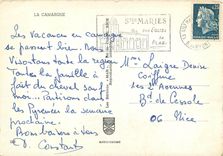 LA CAMARGUE
Les Vacances en Camargue
se passent bien. Nous
visitons toute la région
Toute la famille a
fait du cheval sauf
moi... Partirons dans
les Pyrénées la semaine
prochaine.
Bons baisers à tous
D. Constant
STES MARIES
DE LA MER
Mme Laigre Denise
Coiffure
les 2 Avenues
Bd de Cessole
06 Nice